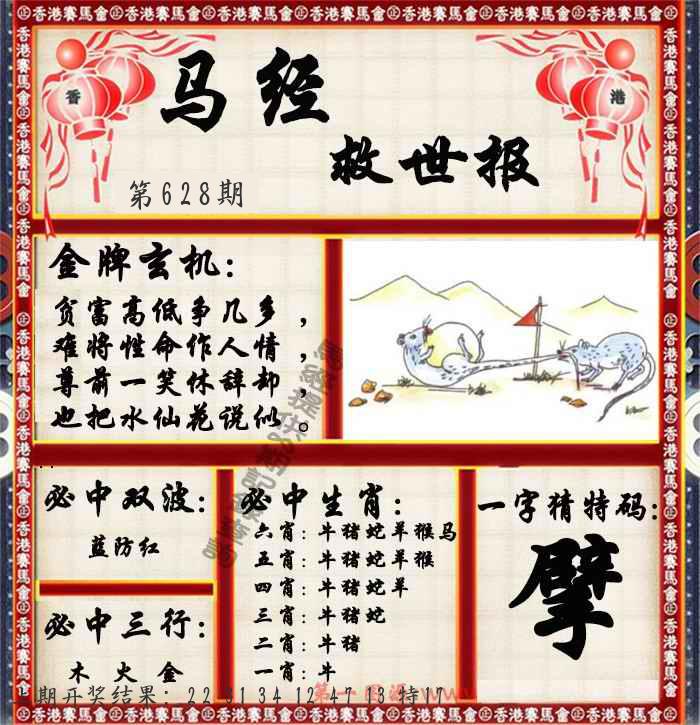 香港賽馬會
香
港
马经
救世报
第628期
金牌玄机：
贫富高低争几多，
难将性命作人情，
尊前一笑休辞却，
也把水仙花说似。
必中双波：
蓝防红
必中三行：
木 火 金
必中生肖：
六肖：牛猪蛇羊猴马
五肖：牛猪蛇羊猴
四肖：牛猪蛇羊
三肖：牛猪蛇
二肖：牛猪
一肖：牛
一字猜特码：
擘
期开奖结果：22 31 34 12 47 13 特17